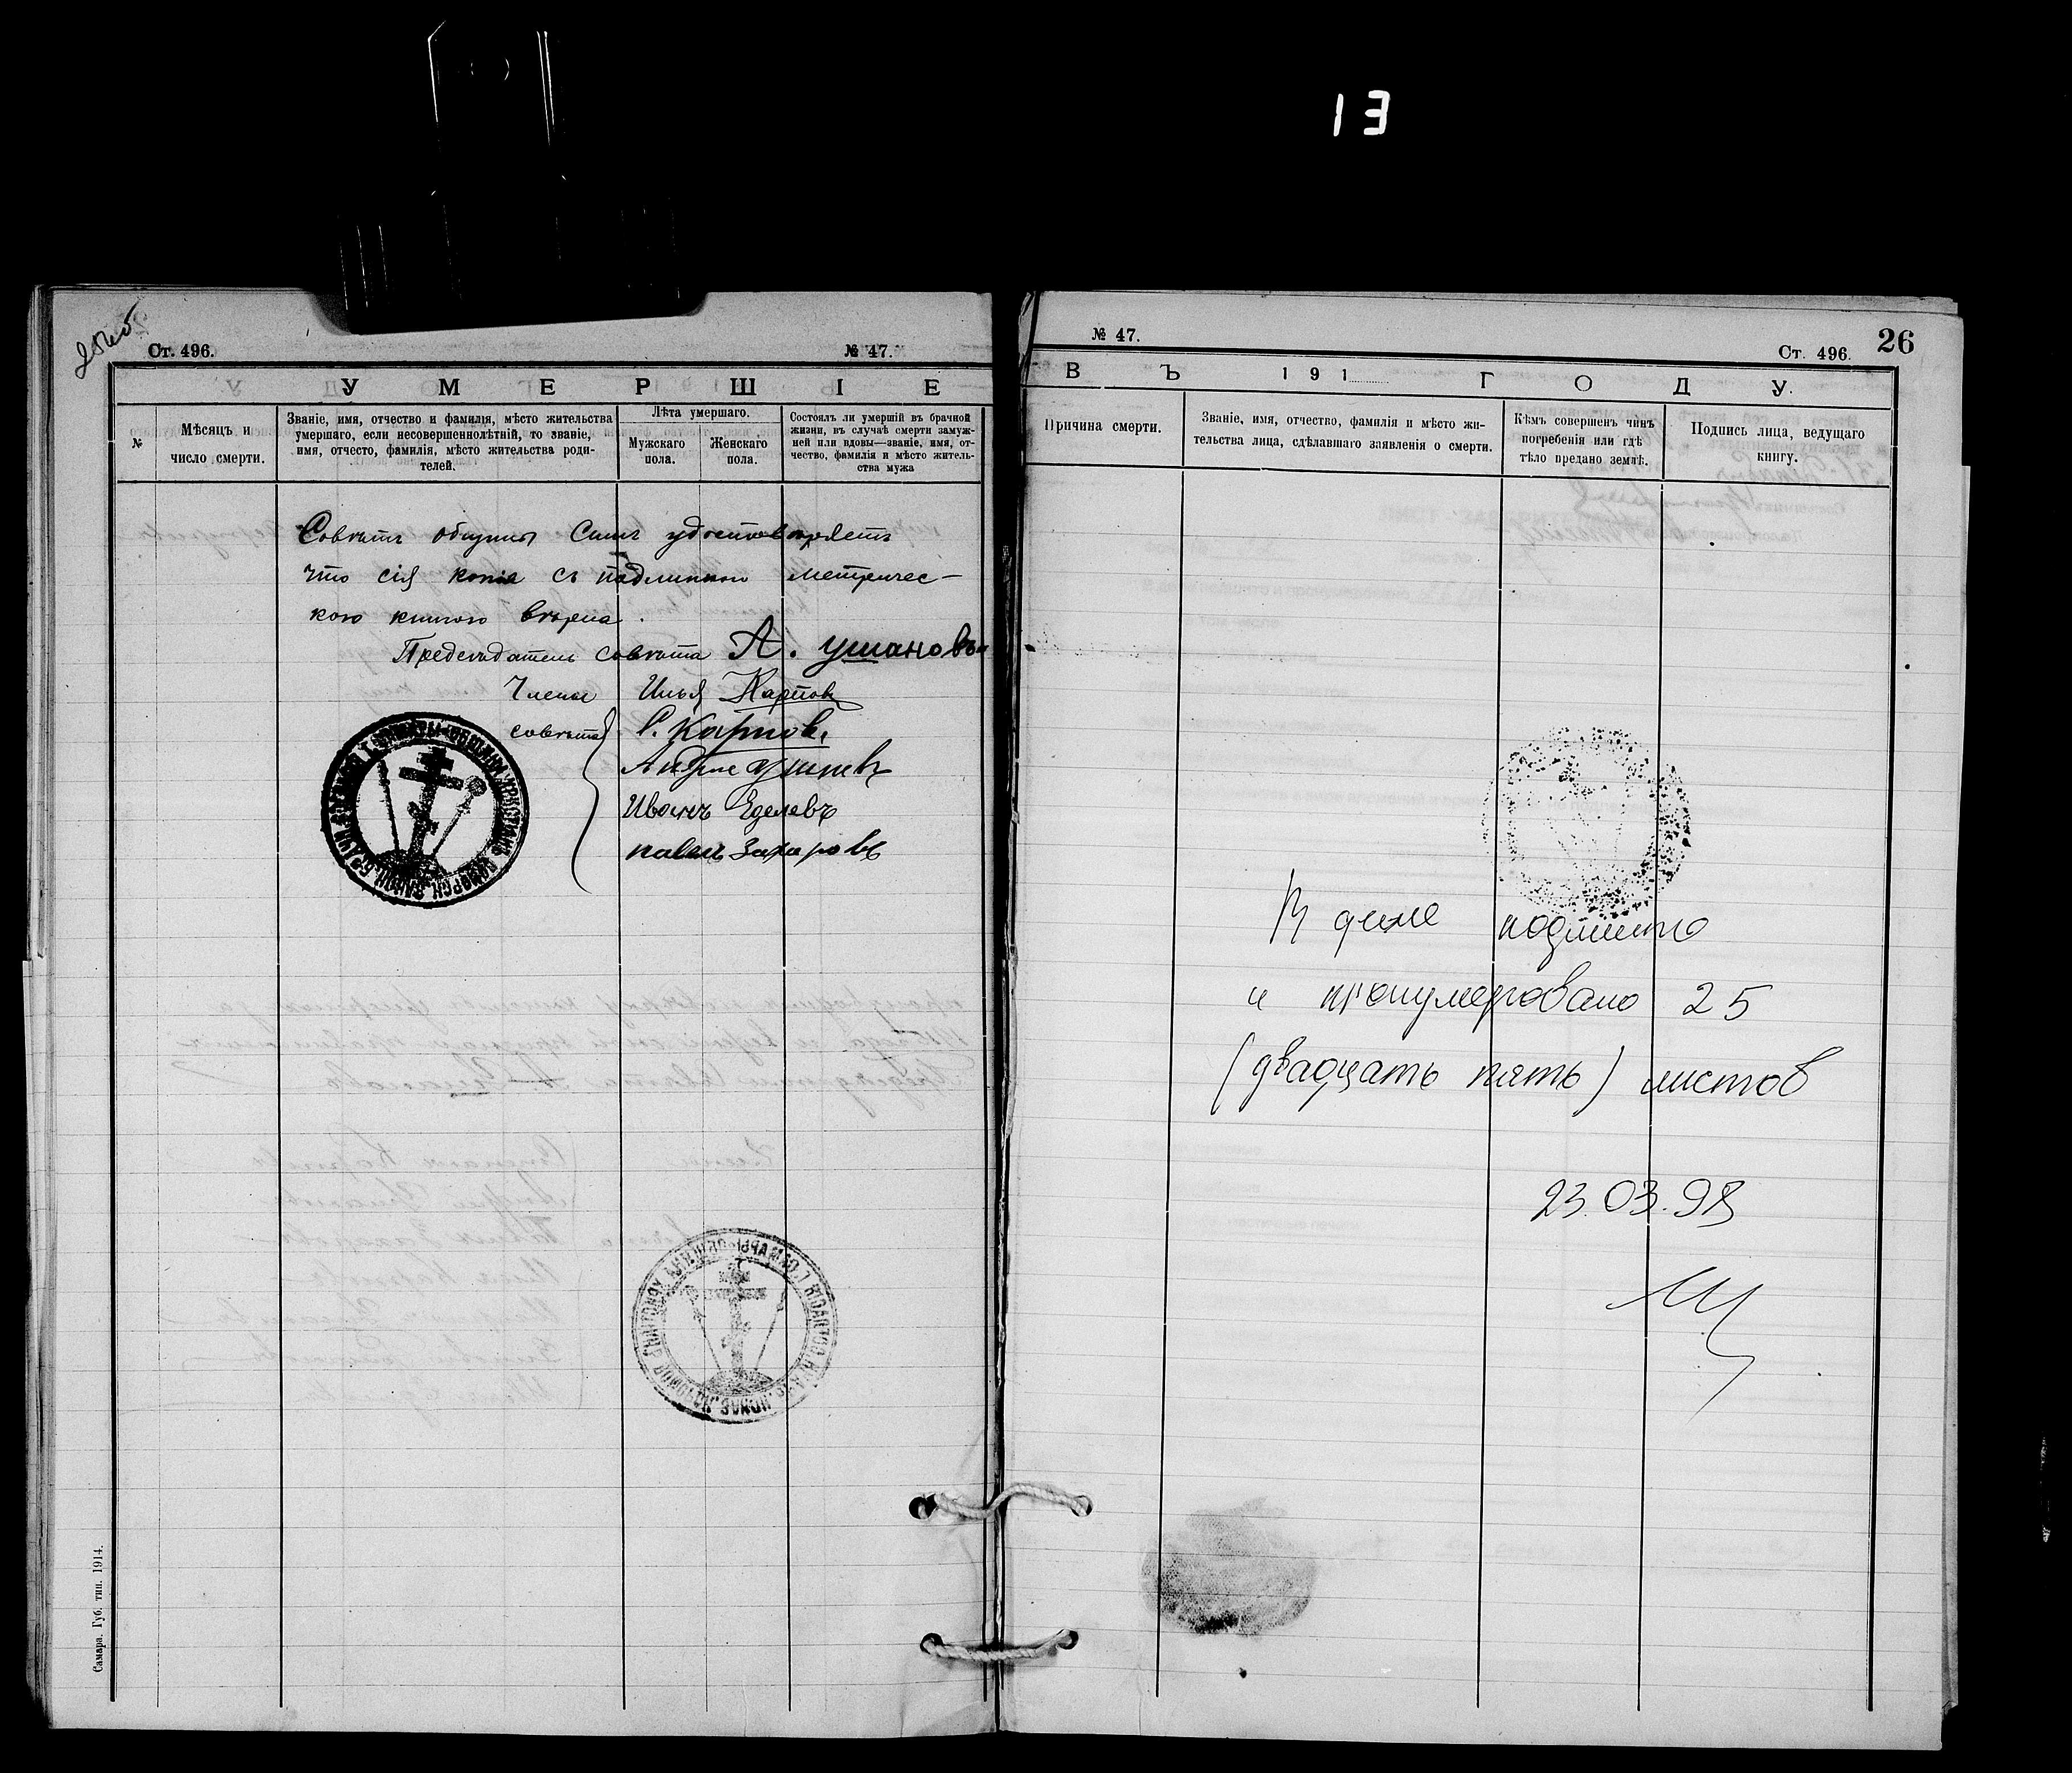 13
Ст. 496.
№ 47.
УМЕРШІЕ
№
Мѣсяцъ и
число смерти.
Званіе, имя, отчество и фамилія, мѣсто жительства
умершаго, если несовершеннолѣтній, то званіе,
имя, отчесто, фамилія, мѣсто жительства роди-
телей.
Лѣта умершаго.
Мужскаго
пола.
Женскаго
пола.
Состоялъ ли умершій въ брачной
жизни, въ случаѣ смерти замуж-
ней или вдовы—званіе, имя, от-
чество, фамилія и мѣсто житель-
ства мужа
Совѣтъ общины Симъ удостовѣряетъ
что сія копія съ подлинною метричес-
кою книгою вѣрна.
Предсѣдатель совѣта А. Ушановъ
Члены
совѣта
Илья Карпов
С. Карпов.
Иванъ Еделевъ
павелъ Захаровъ
Самара. Губ. тип. 1914.
№ 47.
Ст. 496.
26
ВЪ 191 ГОДУ.
Причина смерти.
Званіе, имя, отчество, фамилія и мѣсто жи-
тельства лица, сдѣлавшаго заявленія о смерти.
Кѣмъ совершенъ чинъ
погребенія или гдѣ
тѣло предано землѣ.
Подпись лица, ведущаго
книгу.
В деле подшито
и пронумеровано 25
(двадцать пять) листов
23.03.98